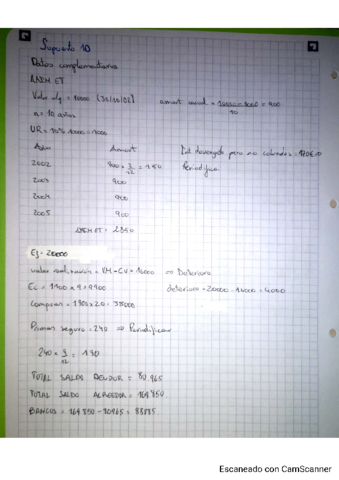 Supuesto 10
Datos complementarios
AAEM ET
Valor adq = 10000 (31/10/02) amort anual = 10000 - 1000 = 900
10
n = 10 años
VR = 10% 10000 = 1000
Año Amort Int devengado pero no cobrados = 170€
2002 900 x = 150 Periodifica
12
2003 900
2004 900
2005 900
AAEM ET = 2850
Ei = 20000
valor realización = VM - CV = 16000 ⇒ Deterioro
Ef = 1100 x 9 = 9900 deterioro = 20000 - 16000 = 4000
Compran = 1900 x 20 = 38000
Primas seguro = 240 ⇒ Periodificar
240 x = 180
12
TOTAL SALDO DEUDOR = 80.965
TOTAL SALDO ACREEDOR = 164.850
BANCOS = 164.850 - 80965 = 83885
Escaneado con CamScanner